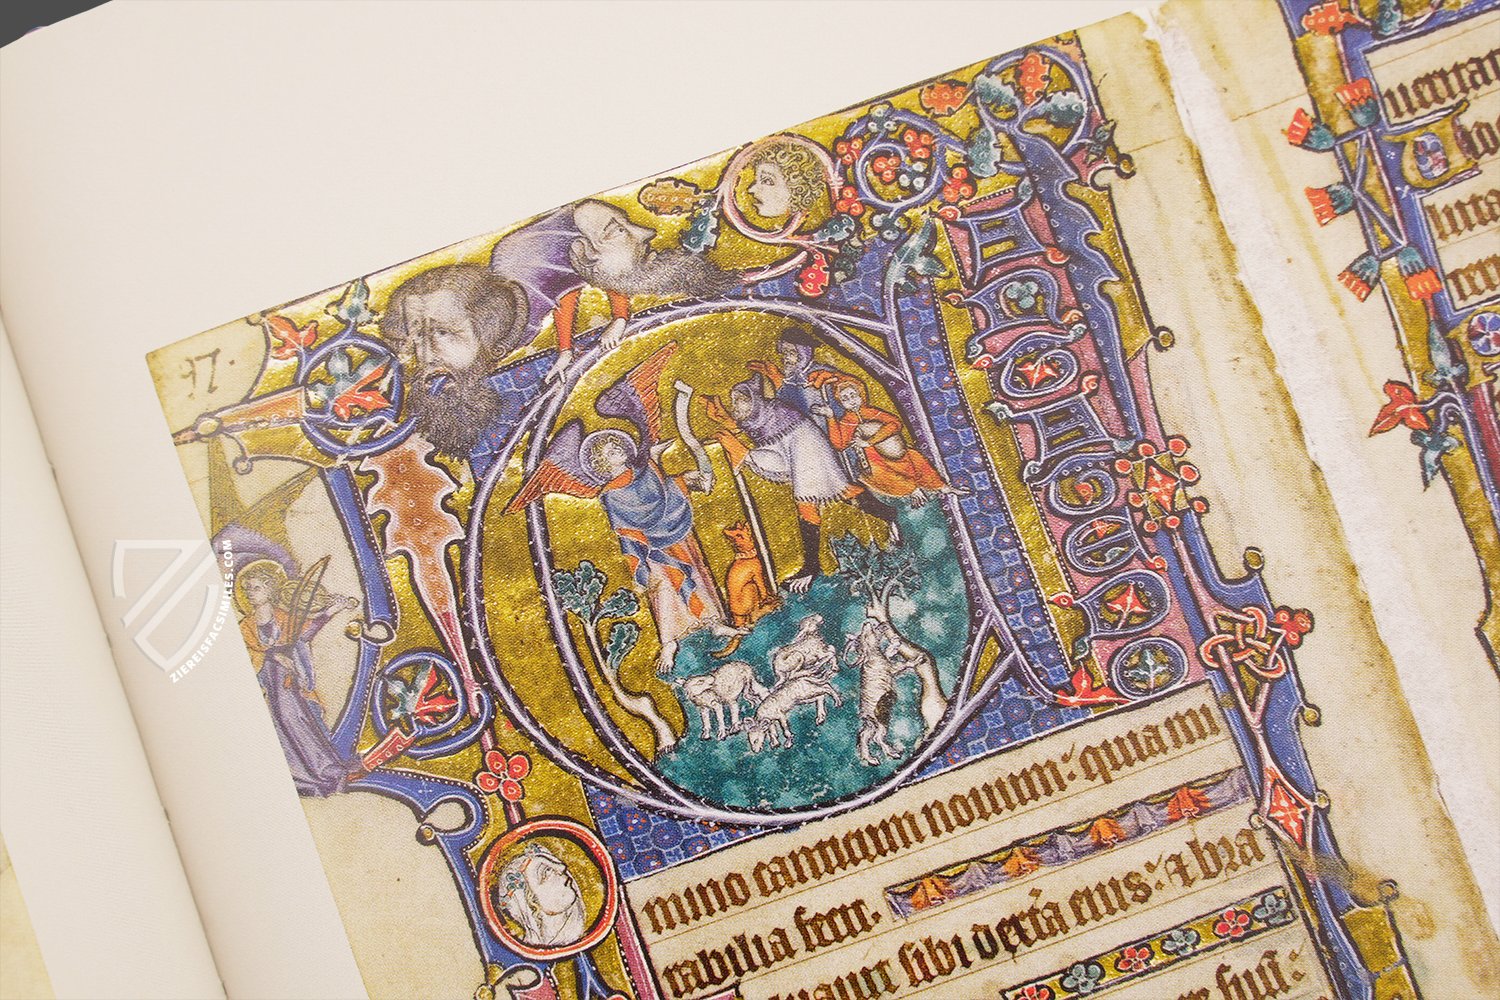 97.
CANTATE DO
mino canticum nouum: quia mi
rabilia fecit.
luauit sibi dext'a eius: & bra
ueritat
luta
ZIEREISFACSIMILES.COM